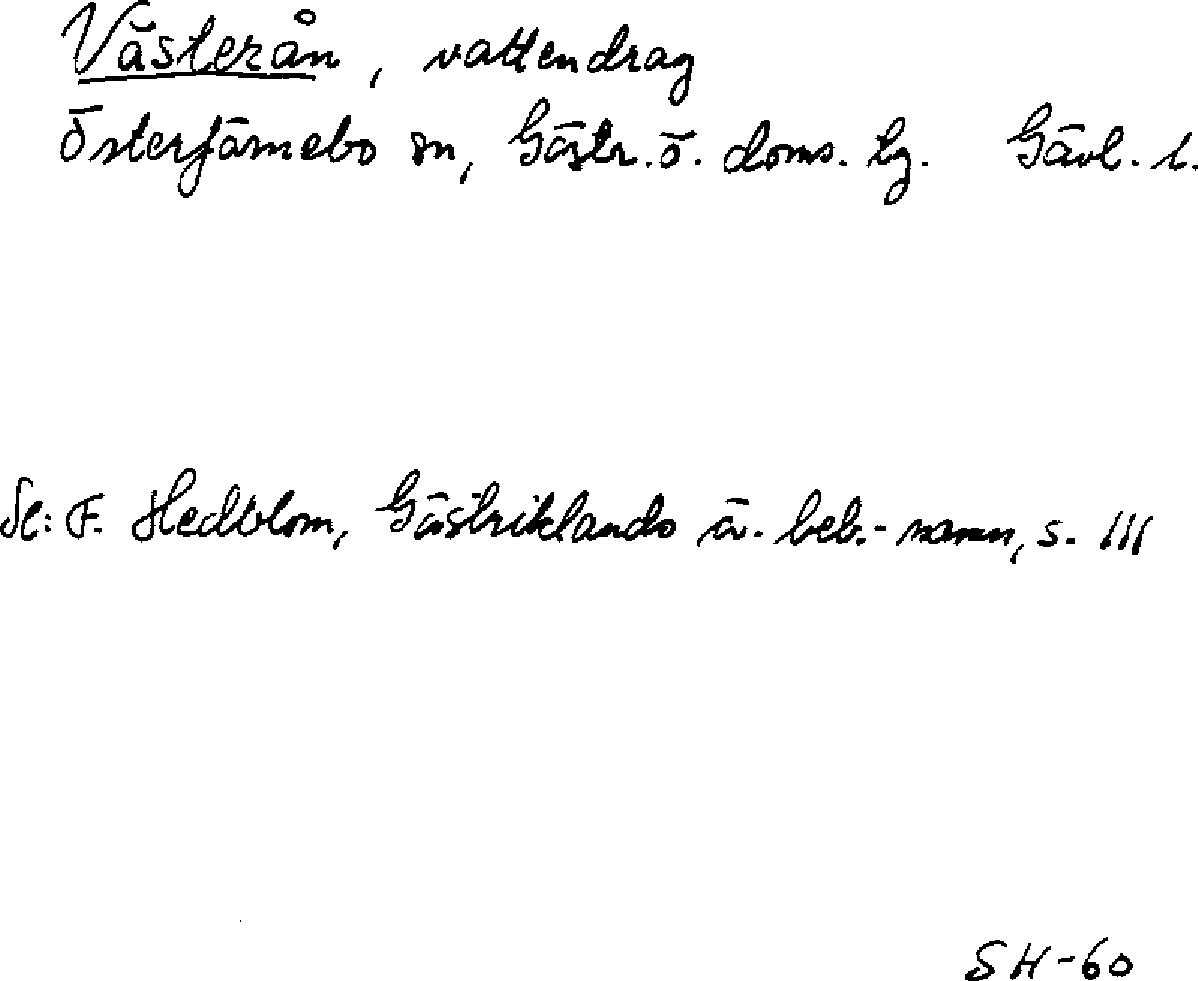 Västerån, vattendrag
Österfärnebo sn, Gästr. ö. doms. tg. Gävl. l.
Se: F. Hedblom, Gästriklands äv. beb.-namn, s. 111
SH-60